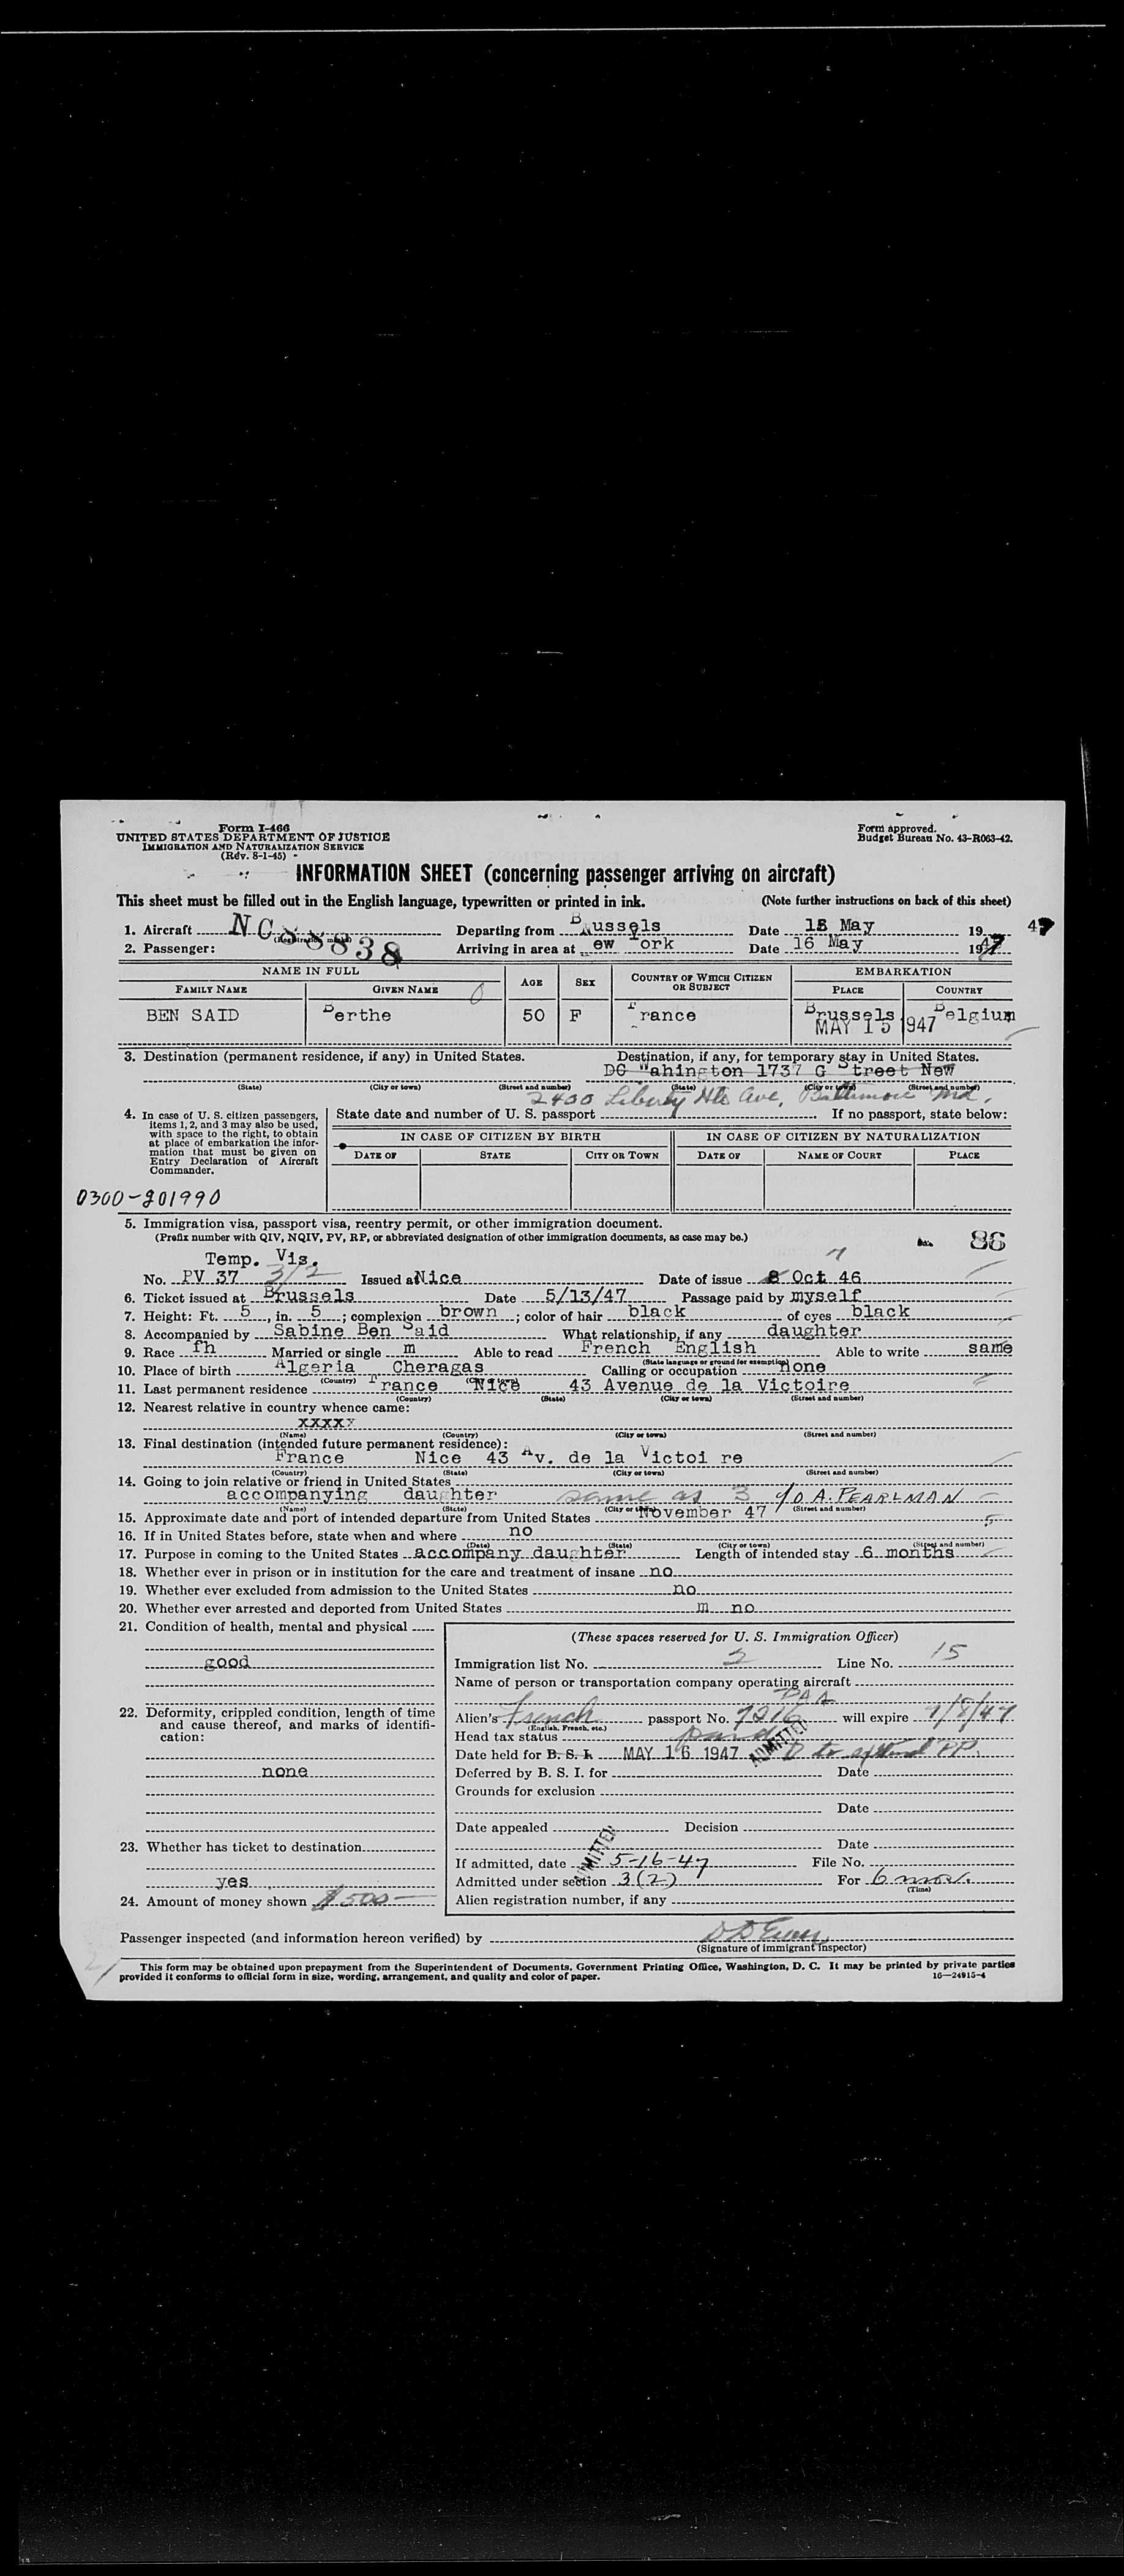 Form I-466
UNITED STATES DEPARTMENT OF JUSTICE
IMMIGRATION AND NATURALIZATION SERVICE
(Rev. 8-1-45)
Form approved.
Budget Bureau No. 43-R063-42.
INFORMATION SHEET (concerning passenger arriving on aircraft)
This sheet must be filled out in the English language, typewritten or printed in ink. (Note further instructions on back of this sheet)
1. Aircraft NC88838 Departing from Brussels Date 15 May 1947
(Registration marks)
2. Passenger: Arriving in area at ew York Date 16 May 1947
NAME IN FULL AGE SEX COUNTRY OF WHICH CITIZEN OR SUBJECT EMBARKATION
FAMILY NAME GIVEN NAME PLACE COUNTRY
BEN SAID Berthe 50 F France Brussels Belgium
MAY 15 1947
3. Destination (permanent residence, if any) in United States. Destination, if any, for temporary stay in United States.
DC Wahington 1737 G Street New
(State) (City or town) (Street and number) (State) (City or town) (Street and number)
2400 Liberty Hts Ave, Baltimore Md.
4. In case of U. S. citizen passengers, items 1, 2, and 3 may also be used, with space to the right, to obtain at place of embarkation the information that must be given on Entry Declaration of Aircraft Commander.
State date and number of U. S. passport If no passport, state below:
IN CASE OF CITIZEN BY BIRTH IN CASE OF CITIZEN BY NATURALIZATION
DATE OF STATE CITY OR TOWN DATE OF NAME OF COURT PLACE
0300-201990
5. Immigration visa, passport visa, reentry permit, or other immigration document.
(Prefix number with QIV, NQIV, PV, RP, or abbreviated designation of other immigration documents, as case may be.)
86
Temp. Vis. 7
No. PV 37 3/2 Issued at Nice Date of issue 8 Oct 46
6. Ticket issued at Brussels Date 5/13/47 Passage paid by myself
7. Height: Ft. 5, in. 5; complexion brown; color of hair black of eyes black
8. Accompanied by Sabine Ben Said What relationship, if any daughter
9. Race fh Married or single m Able to read French English Able to write same
(State language or ground for exemption)
10. Place of birth Algeria Cheragas Calling or occupation none
(Country) (City or town)
11. Last permanent residence France Nice 43 Avenue de la Victoire
(Country) (State) (City or town) (Street and number)
12. Nearest relative in country whence came:
xxxxx
(Name) (Country) (City or town) (Street and number)
13. Final destination (intended future permanent residence):
France Nice 43 Av. de la Victoi re
(Country) (State) (City or town) (Street and number)
14. Going to join relative or friend in United States
accompanying daughter same as 3 c/o A. PEARLMAN
(Name) (State) (City or town) (Street and number)
15. Approximate date and port of intended departure from United States November 47
16. If in United States before, state when and where no
(Date) (State) (City or town) (Street and number)
17. Purpose in coming to the United States accompany daughter Length of intended stay 6 months
18. Whether ever in prison or in institution for the care and treatment of insane no
19. Whether ever excluded from admission to the United States no
20. Whether ever arrested and deported from United States m no
21. Condition of health, mental and physical
good
22. Deformity, crippled condition, length of time and cause thereof, and marks of identification:
none
23. Whether has ticket to destination
yes
24. Amount of money shown $500
(These spaces reserved for U. S. Immigration Officer)
Immigration list No. 2 Line No. 15
Name of person or transportation company operating aircraft
PAA
Alien's French passport No. 7216 will expire 9/8/47
(English, French, etc.)
Head tax status paid
Date held for B. S. I. MAY 16 1947 ADMITTED to extend PP.
Deferred by B. S. I. for Date
Grounds for exclusion
Date
Date appealed Decision
Date
ADMITTED
If admitted, date 5-16-47 File No.
Admitted under section 3(2) For 6 mos.
(Time)
Alien registration number, if any
Passenger inspected (and information hereon verified) by
(Signature of immigrant inspector)
This form may be obtained upon prepayment from the Superintendent of Documents, Government Printing Office, Washington, D. C. It may be printed by private parties
provided it conforms to official form in size, wording, arrangement, and quality and color of paper. 16—24915-4